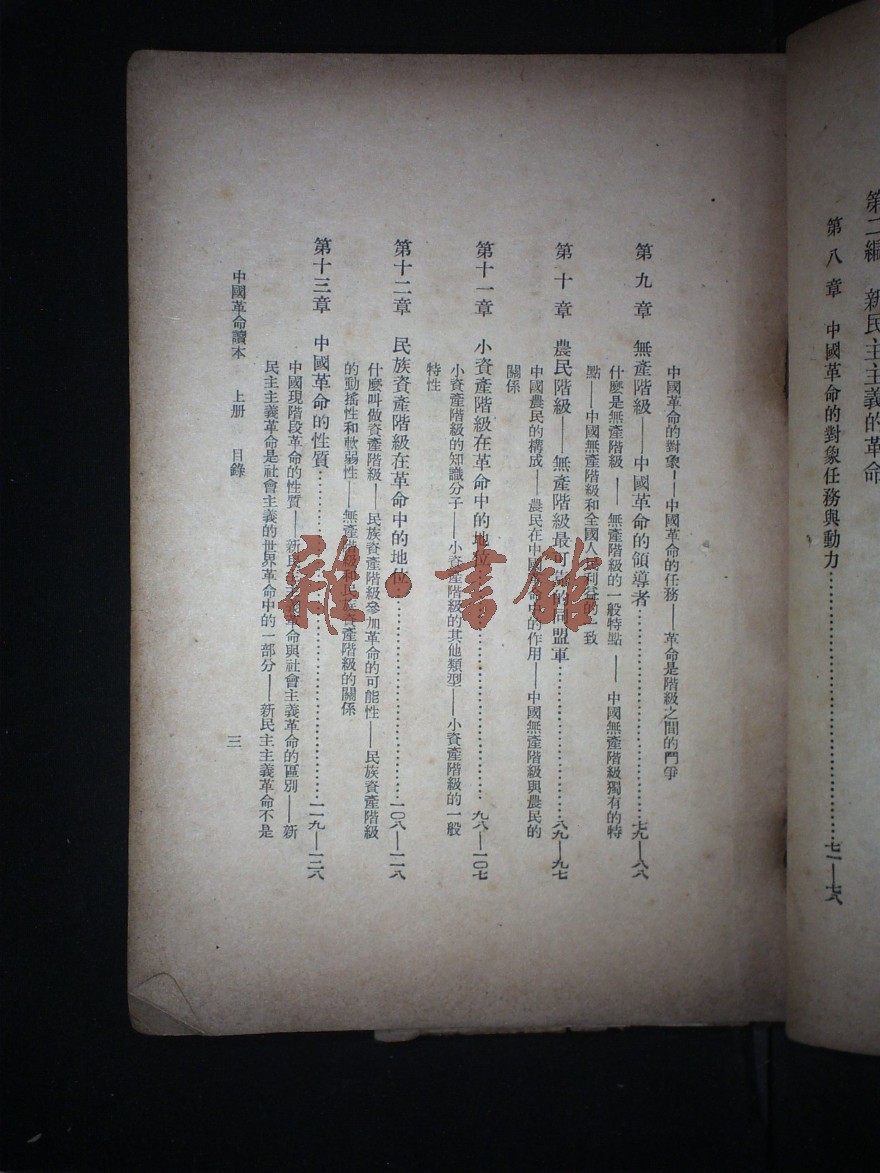 第二編 新民主主義的革命
第八章 中國革命的對象任務與動力……七一—七八
中國革命的對象——中國革命的任務——革命是階級之間的鬥爭
第九章 無產階級——中國革命的領導者……七九—八八
什麼是無產階級——無產階級的一般特點——中國無產階級獨有的特
點——中國無產階級和全國人民利益的一致
第十章 農民階級——無產階級最可靠的同盟軍……八九—九七
中國農民的構成——農民在中國革命中的作用——中國無產階級與農民的
關係
第十一章 小資產階級在革命中的地位……九八—一〇七
小資產階級的知識分子——小資產階級的其他類型——小資產階級的一般
特性
第十二章 民族資產階級在革命中的地位……一〇八—一一八
什麼叫做資產階級——民族資產階級參加革命的可能性——民族資產階級
的動搖性和軟弱性——無產階級和民族資產階級的關係
第十三章 中國革命的性質……一一九—一二八
中國現階段革命的性質——新民主主義革命與社會主義革命的區別——新
民主主義革命是社會主義的世界革命中的一部分——新民主主義革命不是
中國革命讀本 上册 目錄 三
雜·書館